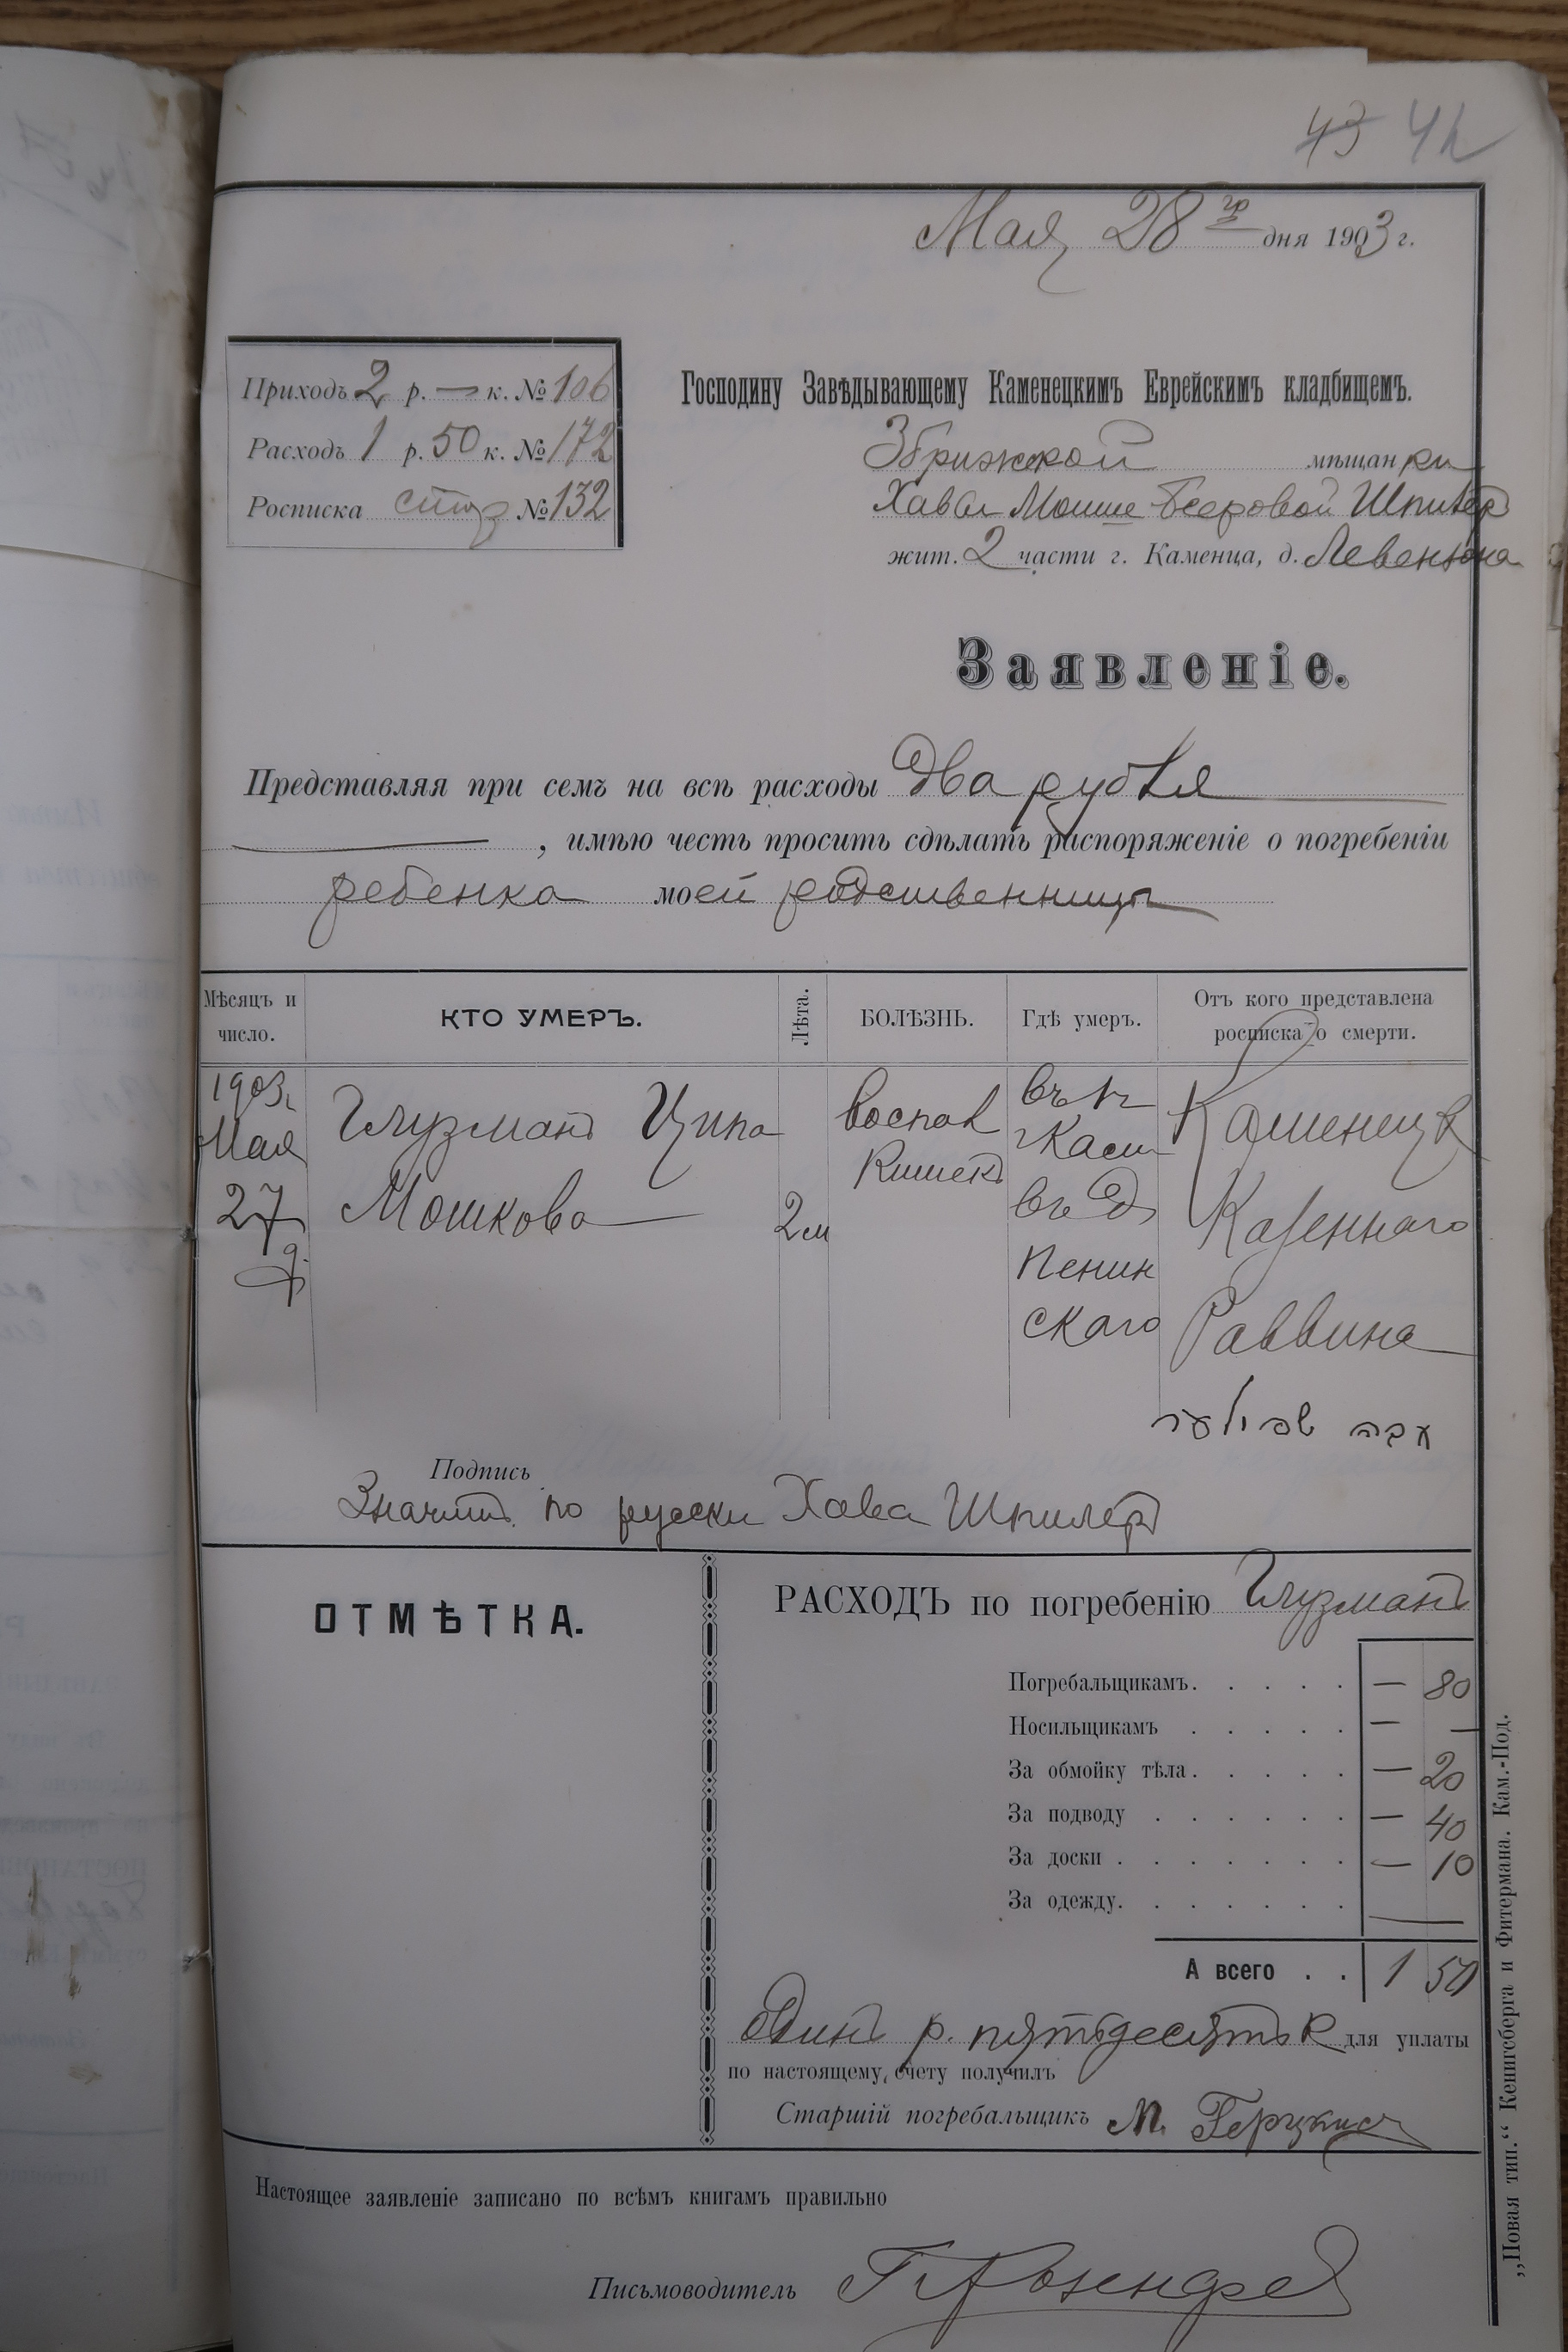 43 42
Мая 28 го дня 1903 г.
Приходъ 2 р. — к. № 106
Расходъ 1 р. 50 к. № 172
Росписка № 132
Господину Завѣдывающему Каменецкимъ Еврейскимъ кладбищемъ.
Збрижской мѣщанки
Хавы Мошне Бееровой Шпилер
жит. 2 части г. Каменца, д. Левензона
Заявленіе.
Представляя при семъ на всѣ расходы Два рубля
, имѣю честь просить сдѣлать распоряженіе о погребеніи
ребенка моей родственницы
Мѣсяцъ и число. КТО УМЕРЪ. Лѣта. БОЛѢЗНЬ. Гдѣ умеръ. Отъ кого представлена росписка о смерти.
1903 г. Глузманъ Ципа воспал въ К Каменецк
Мая Мошкова Кишекъ Казеннаго
27 2 м въ д Раввина
д. Пенин
скаго
חוה שפילער
Подпись
Значитъ по русски Хава Шпилеръ
ОТМѢТКА.
РАСХОДЪ по погребенію Глузманъ
Погребальщикамъ. . . . . — 80
Носильщикамъ . . . . . — —
За обмойку тѣла. . . . . — 20
За подводу . . . . . . — 40
За доски . . . . . . . — 10
За одежду. . . . . . . —
А всего . . 1 50
Одинъ р. пятьдесятъ к для уплаты
по настоящему счету получилъ
Старшій погребальщикъ М.
Настоящее заявленіе записано по всѣмъ книгамъ правильно
Письмоводитель
„Новая тип.“ Кенигсберга и Фитермана. Кам.-Под.